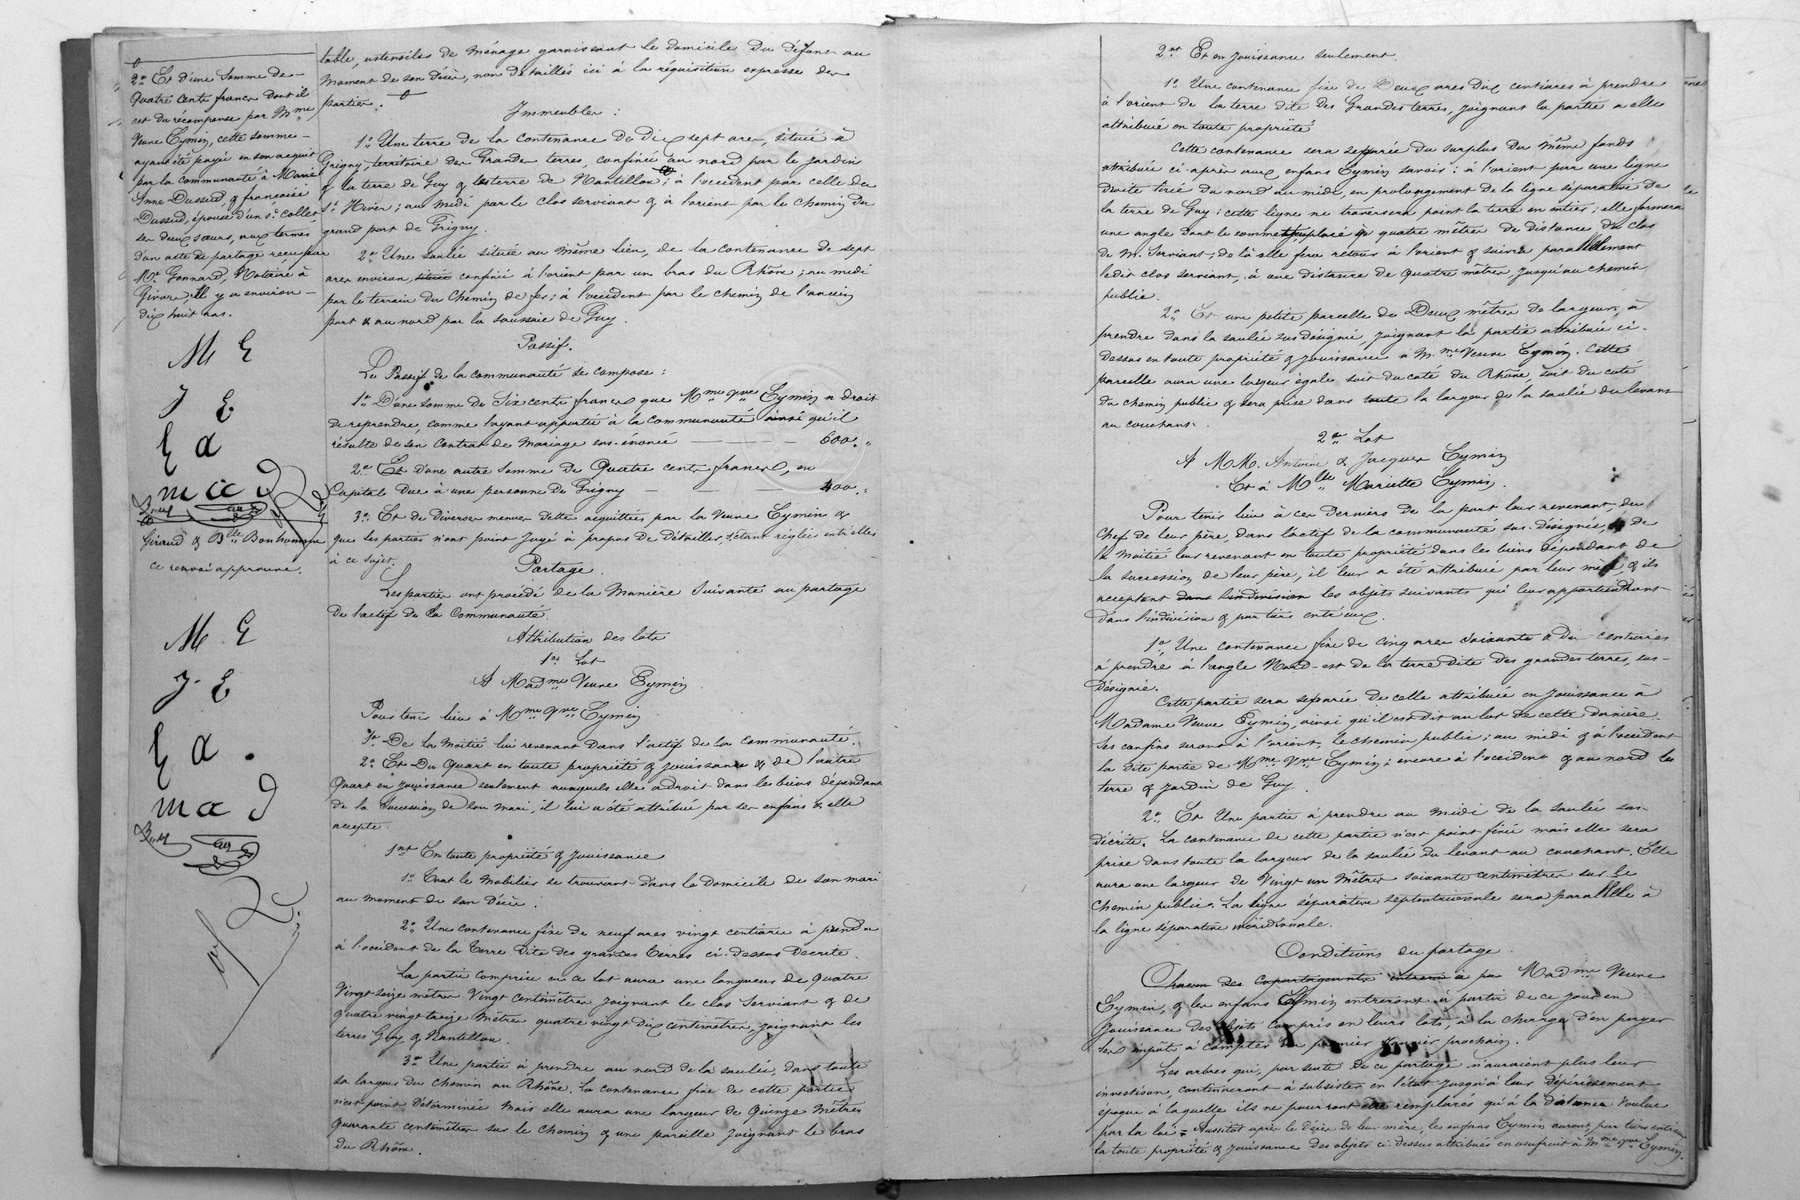 2° Et d'une somme de
Quatre cents francs dont il
est du récompense par Mme
Veuve Eymin, cette somme
ayant été payé en son acquit
par la communauté à Marie
Anne Dussud, & françoise
Dussud, épouse d'un sr. Collet,
ses deux sœurs, aux termes
d'un acte de partage reçu par
Me. Gonnard, Notaire à
Givors, il y a environ
dix huit ans.
M E
J E
E a
m a d
Giraud & Blle Bonhomme
Ce renvoi approuvé.
M. E
J. E
E a.
m a d
table, ustensiles de ménage garnissant le domicile du défunt au
moment de son décès, non détaillés ici à la réquisition expresse des
parties.
Immeubles :
1°. Une terre de la contenance de dix sept ares, située à
Grigny, territoire des Grandes terres, confinée au nord par le jardin
& la terre de Guy & la terre de Nantillon ; à l'occident par celle du
sr. Hiver ; au midi par le clos serviant & à l'orient par le chemin du
grand port de Grigny.
2°. Une saulée située au même lieu, de la contenance de sept
ares environ située confinée à l'orient par un bras du Rhône ; au midi
par le terrain du chemin de fer ; à l'occident par le chemin de l'ancien
port & au nord par la saussaie de Guy.
Passif.
Le Passif de la communauté se compose :
1°. D'une somme de Six cents francs que Mme Vve Eymin a droit
de reprendre, comme l'ayant apportée à la communauté ainsi qu'il
résulte de son contrat de mariage sus-énoncé 600. "
2° Et d'une autre somme de Quatre cents francs, en
Capital due à une personne de Grigny 400. "
3° Et de diverses menues dettes acquittées par la Veuve Eymin &
que les parties n'ont point jugé à propos de détailler, s'étant réglées entr'elles
à ce sujet.
Partage.
Les parties ont procédé de la manière suivante au partage
de l'actif de la Communauté.
Attribution des lots
1er Lot
A Madme Veuve Eymin
Pour tenir lieu à Mme Vve Eymin
1° De la moitié lui revenant dans l'actif de la communauté.
2° Et Du quart en toute propriété & jouissance & de l'autre
Quart en jouissance seulement auxquels elle a droit dans les biens dépendant
de la succession de son mari, il lui a été attribué par ses enfans & elle
accepte.
1ent En toute propriété & jouissance
1° Tout le mobilier se trouvant dans le domicile de son mari
au moment de son décès.
2° Une contenance fixe de neuf ares vingt centiares à prendre
à l'occident de la Terre dite des grandes terres ci-dessus décrite.
La partie comprise en ce lot aura une longueur de quatre
Vingt seize mètres Vingt centimètres, joignant le clos Serviant & de
quatre vingt treize mètres quatre vingt dix centimètres, joignant les
terres Guy & Nantillon.
3° Une partie à prendre au nord de la saulée, dans toute
sa largeur du chemin au Rhône. La contenance fixe de cette partie
n'est point déterminée mais elle aura une largeur de Quinze mètres
quarante centimètres sur le chemin & une pareille joignant le bras
du Rhône.
2ent Et en jouissance seulement.
1° Une contenance fixe de Deux ares dix centiares à prendre
à l'orient de la terre dite des Grandes terres, joignant la partie à elle
attribuée en toute propriété
Cette contenance sera séparée du surplus du même fonds
attribuée ci-après aux enfans Eymin savoir : à l'orient par une ligne
droite tirée du nord au midi, en prolongement de la ligne séparative de
la terre de Guy : cette ligne ne traversera point la terre en entier ; elle formera
un angle dont le sommet placé à quatre mètres de distance du clos
de M. Serviant, de là elle fera retour à l'orient & suivra parallèlement
ledit clos serviant, à une distance de quatre mètres, jusqu'au chemin
public.
2° Et une petite parcelle de Deux mètres de largeur, à
prendre dans la saulée sus désignée, joignant la partie attribuée ci-
dessus en toute propriété & jouissance à Mme Veuve Eymin. Cette
parcelle aura une largeur égale soit du coté du Rhône, soit du coté
du chemin public & sera prise dans toute la largeur de la saulée du levant
au couchant.
2e Lot
A MM. Antoine & Jacques Eymin
Et à Melle Mariette Eymin.
Pour tenir lieu à ces derniers de la part leur revenant, du
chef de leur père, dans l'actif de la communauté sus-désignée, & de
la moitié leur revenant en toute propriété dans les biens dépendant de
la succession de leur père, il leur a été attribué par leur mère & ils
acceptent dans l'indivision les objets suivants qui leur appartiendront
dans l'indivision & par tiers entr'eux.
1° Une contenance fixe de cinq ares soixante & dix centiares
à prendre à l'angle Nord-est de la terre dite des grandes terres, sus-
désignée.
Cette partie sera séparée de celle attribuée en jouissance à
Madame Veuve Eymin, ainsi qu'il est dit au lot de cette dernière.
Ses confins seront à l'orient, le chemin public ; au midi & à l'occident
la dite partie de Mme Vve Eymin ; encore à l'occident & au nord les
terre & jardin de Guy.
2° Et Une partie à prendre au midi de la saulée sus-
décrite. La contenance de cette partie n'est point fixée mais elle sera
prise dans toute la largeur de la saulée du levant au couchant. Elle
aura une largeur de Vingt un mètres soixante centimètres sur le
chemin public. La ligne séparative septentrionale sera parallèle à
la ligne séparative méridionale.
Conditions du partage.
Chacun des Copartageants entrera à par Madme Veuve
Eymin, & les enfans Eymin entreront à partir de ce jour en
jouissance des objets compris en leurs lots, à la charge d'en payer
les impôts à compter du premier Janvier prochain.
Les arbres qui, par suite de ce partage n'auraient plus leur
investison, continueront à subsister en l'état jusqu'à leur dépérissement
époque à laquelle ils ne pourront être remplacés qu'à la distance voulue
par la loi = Aussitôt après le décès de leur mère, les enfans Eymin auront, par tiers entr'eux
la toute propriété & jouissance des objets ci-dessus attribués en usufruit à Mme Vve Eymin.